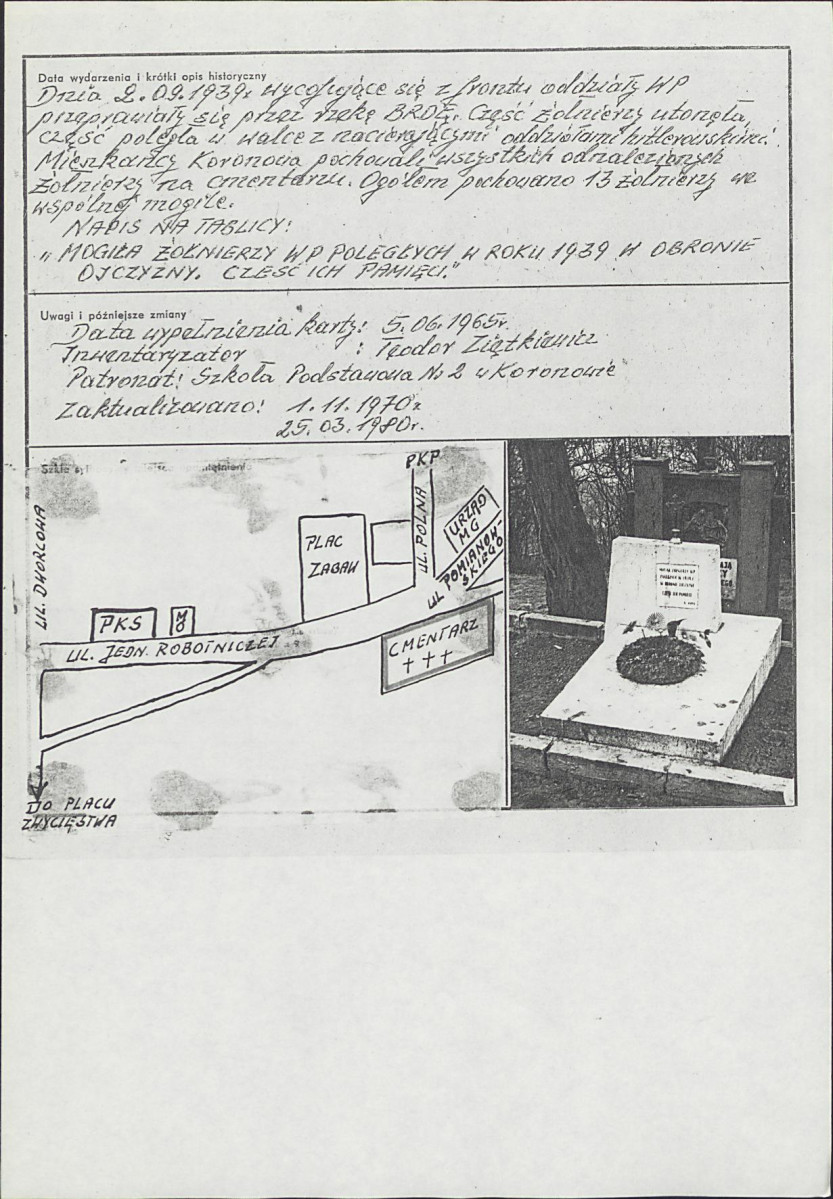 Data wydarzenia i krótki opis historyczny
Dnia 2.09.1939r wycofujące się z frontu oddziały WP
przeprawiały się przez rzekę BRDĘ. Część żołnierzy utonęła,
część poległa w walce z nacierającymi oddziałami hitlerowskimi.
Mieszkańcy Koronowa pochowali wszystkich odnalezionych
żołnierzy na cmentarzu. Ogółem pochowano 13 żołnierzy we
wspólnej mogile.
NAPIS NA TABLICY:
„MOGIŁA ŻOŁNIERZY WP POLEGŁYCH W ROKU 1939 W OBRONIE
OJCZYZNY. CZEŚĆ ICH PAMIĘCI."
Uwagi i późniejsze zmiany
Data wypełnienia karty: 5.06.1965r.
Inwentaryzator : Teodor Ziętkiewicz
Patronat: Szkoła Podstawowa Nr 2 w Koronowie
Zaktualizowano: 1.11.1970r
25.03.1980r.
PKP
UL. DWORCOWA
UL. POLNA
URZĄD
MG
PLAC
ZABAW
UL. POMIANOW-
SKIEGO
PKS
MO
UL. JEDN. ROBOTNICZEJ
CMENTARZ
DO PLACU
ZWYCIĘSTWA